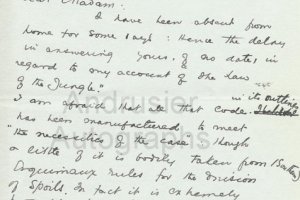 Dear Madam:
I have been absent from
home for some days: Hence the delay
in answering yours, of no date, in
regard to my account of the Law
of the Jungle."
in its outlines
I am afraid that all that code
has been manufactured to meet
"the necessities of the case." though
a little of it is bodily taken from (Southern)
Esquimaux rules for the division
of Spoils. In fact it is extremely
Andrusier
Autographs